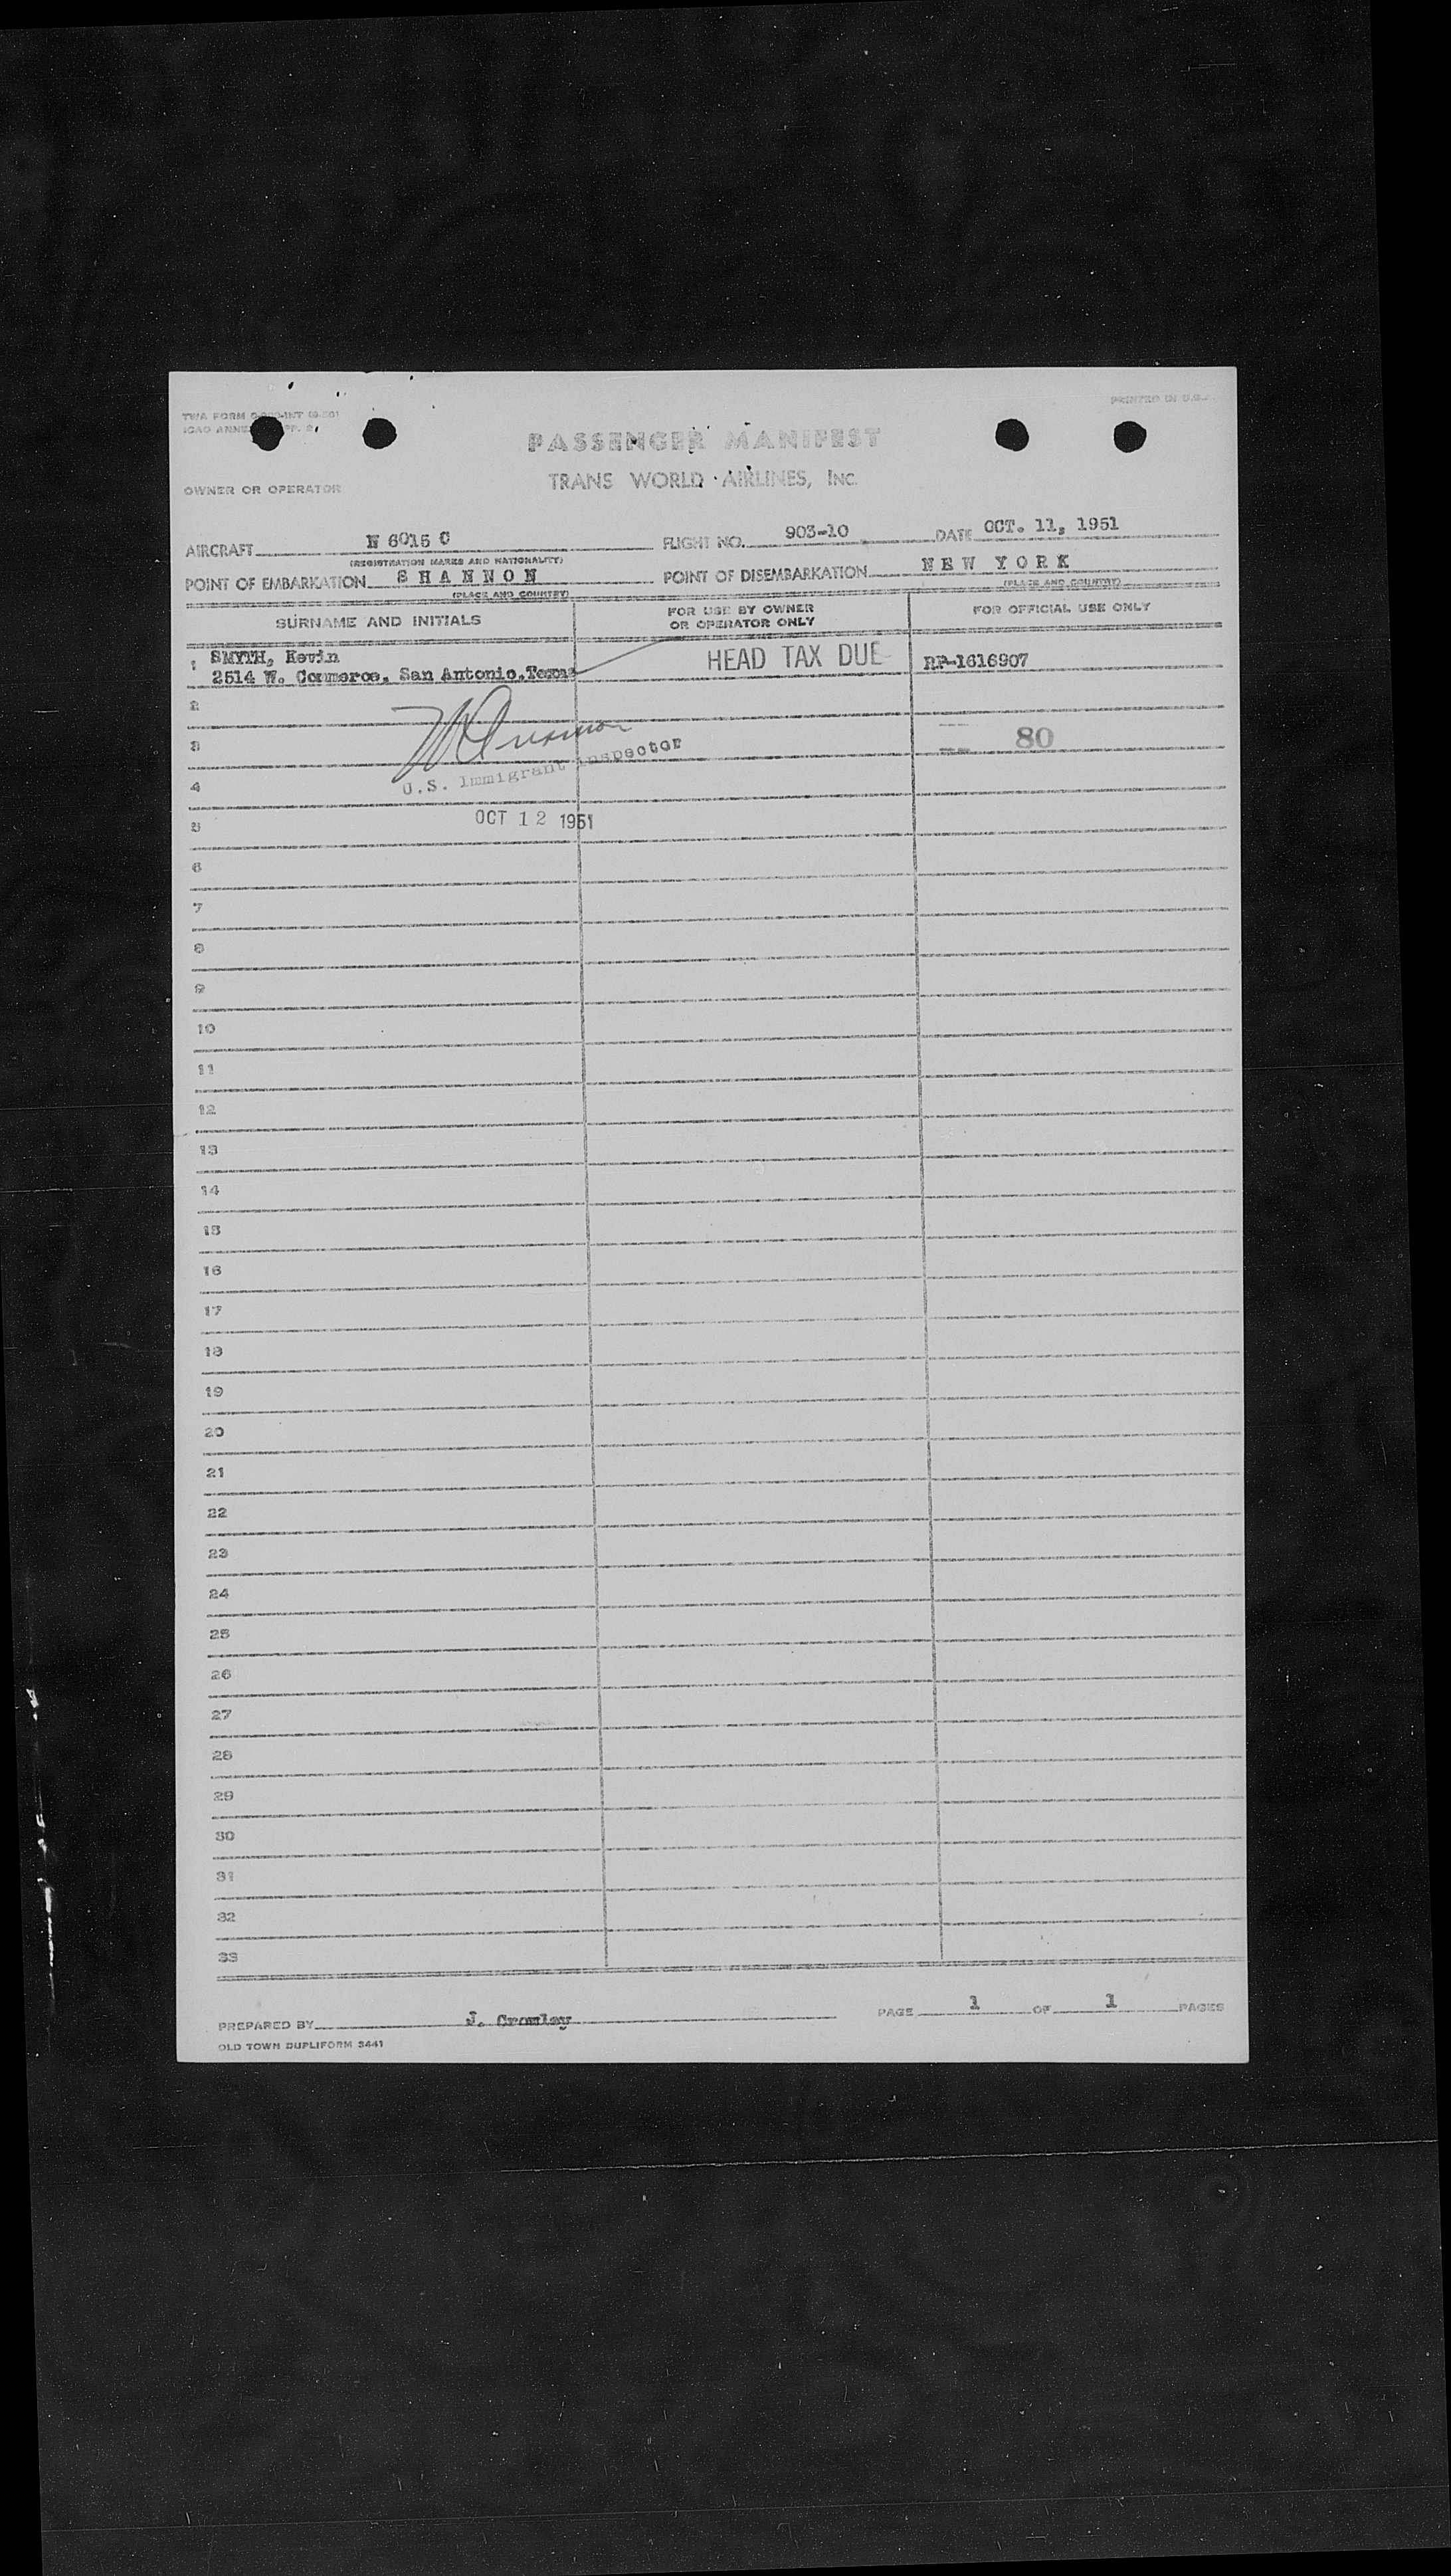 TWA FORM
ICAO ANNE
PRINTED IN U.S.
PASSENGER MANIFEST
TRANS WORLD AIRLINES, INC.
OWNER OR OPERATOR
AIRCRAFT N 6015 C FLIGHT NO. 903-10 DATE OCT. 11, 1951
(REGISTRATION MARKS AND NATIONALITY)
POINT OF EMBARKATION S H A N N O N POINT OF DISEMBARKATION N E W Y O R K
(PLACE AND COUNTRY) (PLACE AND COUNTRY)
SURNAME AND INITIALS FOR USE BY OWNER OR OPERATOR ONLY FOR OFFICIAL USE ONLY
1 SMYTH, Kevin
2514 W. Commerce, San Antonio,Texas HEAD TAX DUE RP-1616907
2
3 80
U.S. Immigrant Inspector
4
OCT 12 1951
5
6
7
8
9
10
11
12
13
14
15
16
17
18
19
20
21
22
23
24
25
26
27
28
29
30
31
32
33
PREPARED BY J. Crowley PAGE 1 OF 1 PAGES
OLD TOWN DUPLIFORM 3441